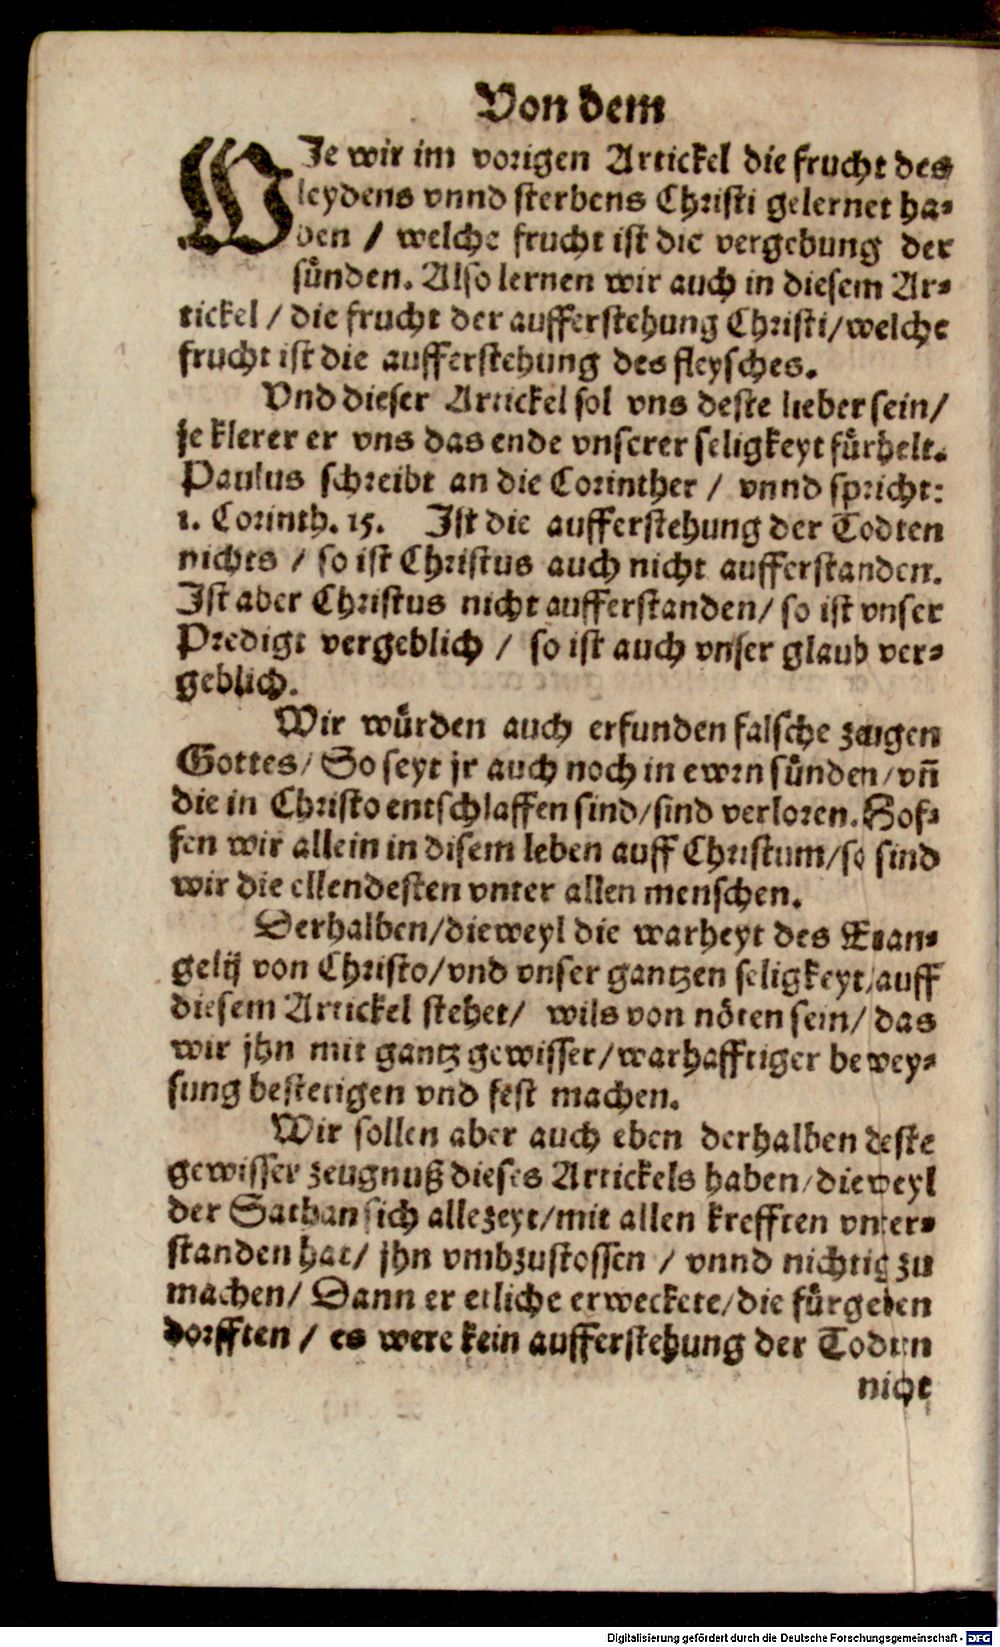 Von dem
WJe wir im vorigen Artickel die frucht des
leydens vnnd sterbens Christi gelernet ha-
ben / welche frucht ist die vergebung der
sünden. Also lernen wir auch in diesem Ar-
tickel / die frucht der aufferstehung Christi/welche
frucht ist die aufferstehung des fleysches.
Vnd dieser Artickel sol vns deste lieber sein/
je klerer er vns das ende vnserer seligkeyt fürhelt.
Paulus schreibt an die Corinther / vnnd spricht:
1. Corinth. 15. Jst die aufferstehung der Todten
nichts / so ist Christus auch nicht aufferstanden.
Jst aber Christus nicht aufferstanden/ so ist vnser
Predigt vergeblich / so ist auch vnser glaub ver-
geblich.
Wir würden auch erfunden falsche zeugen
Gottes/ So seyt jr auch noch in ewrn sünden/vñ
die in Christo entschlaffen sind/sind verloren. Hof-
fen wir allein in disem leben auff Christum/so sind
wir die ellendesten vnter allen menschen.
Derhalben/dieweyl die warheyt des Euan-
gelij von Christo/vnd vnser gantzen seligkeyt/auff
diesem Artickel stehet/ wils von nöten sein/ das
wir jhn mit gantz gewisser/warhafftiger bewey-
sung bestetigen vnd fest machen.
Wir sollen aber auch eben derhalben deste
gewisser zeugnuß dieses Artickels haben/dieweyl
der Sathan sich allezeyt/mit allen krefften vnter-
standen hat/ jhn vmbzustossen / vnnd nichtig zu
machen/ Dann er etliche erweckete/die fürgeben
dorfften / es were kein aufferstehung der Todten
nicht
Digitalisierung gefördert durch die Deutsche Forschungsgemeinschaft - DFG